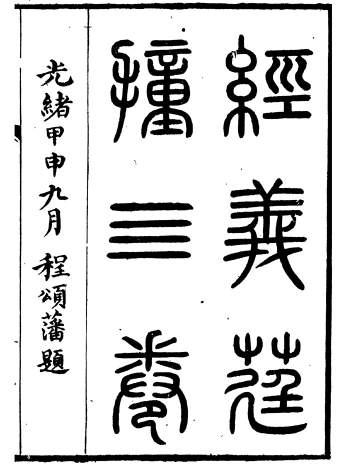 經義莛
撞亖卷
光緒甲申九月 程頌藩題